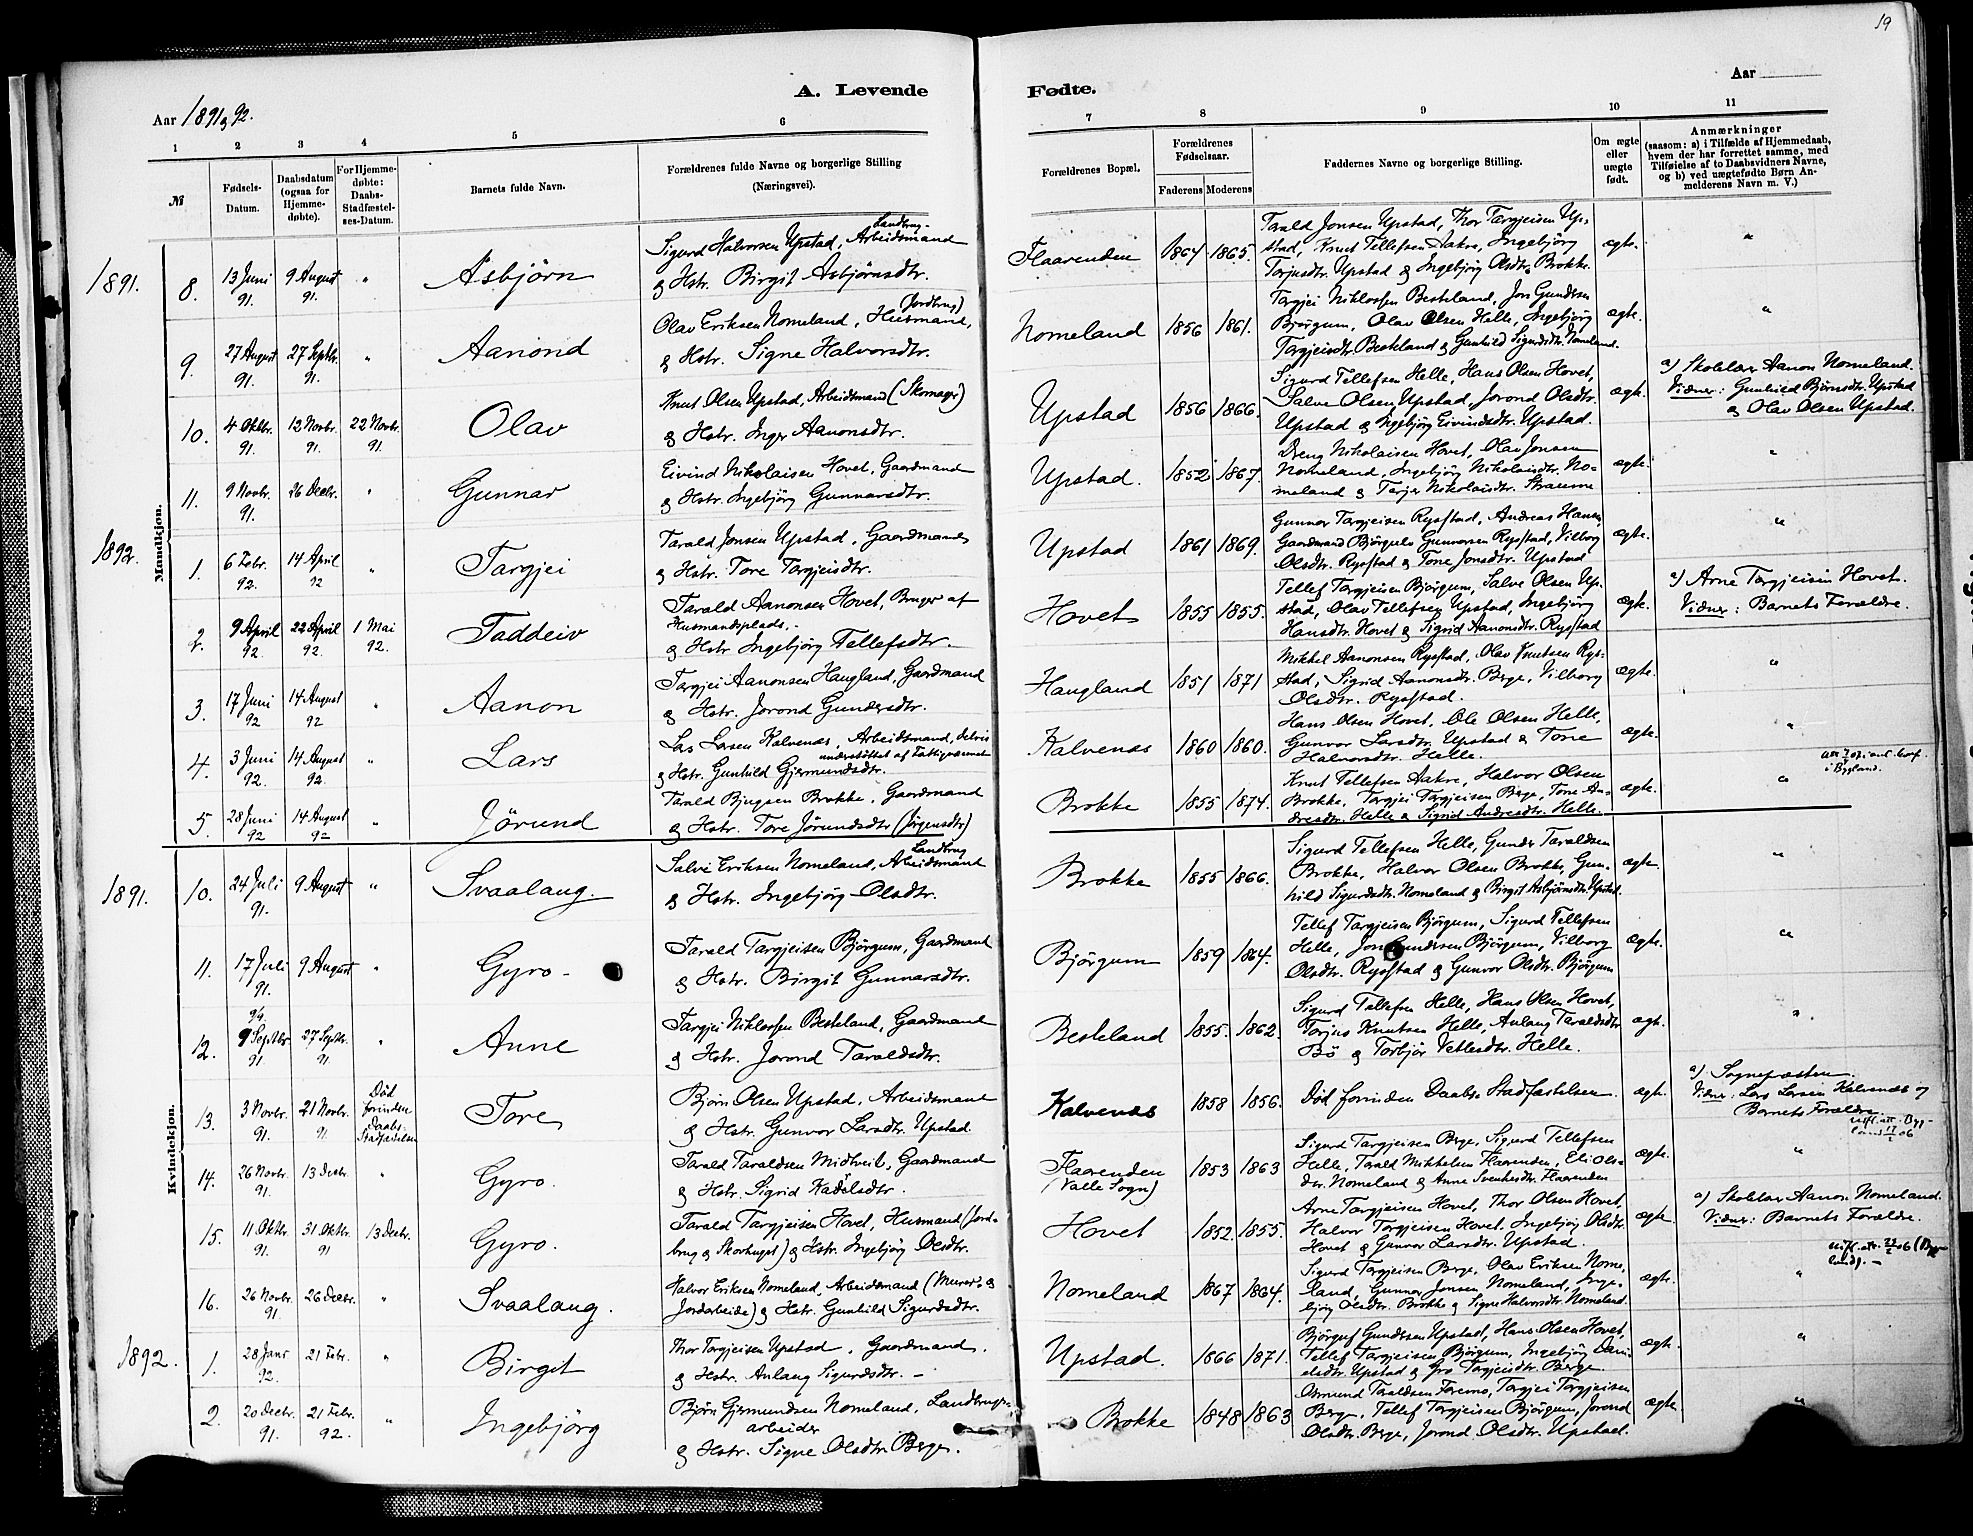 19
A. Levende Fødte.
Aar 1891 og 92.
Aar
1 2 3 4 5 6 7 8 9 10 11
№
Fødsels-Datum.
Daabsdatum (ogsaa for Hjemme-døbte).
For Hjemme-døbte: Daabs-Stadfæstel-ses-Datum.
Barnets fulde Navn.
Forældrenes fulde Navne og borgerlige Stilling (Næringsvei).
Forældrenes Bopæl.
Forældrenes Fødselsaar.
Faderens Moderens
Faddernes Navne og borgerlige Stilling.
Om ægte eller uægte født.
Anmærkninger (saasom: a) i Tilfælde af Hjemmedaab, hvem der har forrettet samme, med Tilføielse af to Daabsvidners Navne, og b) ved uægtefødte Børn Anmelderens Navn m. V.)
Mandkjøn.
1891. 8. 13 Juni 91. 9 August 91. " Asbjørn
Sigurd Halvorsen Upstad, Landbrug-Arbeidsmand
& Hstr. Birgit Asbjørnsdtr.
Flaarenden 1864 1865.
Tarald Jonsen Upstad, Thor Targjeisen Up-
stad, Knut Tellefsen Aakre, Ingebjörg
Torjusdtr. Upstad & Ingebjörg Olsdtr. Brokke.
ægte. "
9. 27 August 91. 27 Septbr. 91. " Aanond
Olav Eriksen Nomeland, Husmand, (Jordbrug)
& Hstr. Signe Halvorsdtr.
Nomeland 1856 1861.
Targjei Niklossen Besteland, Jon Gundersen
Bjørgum, Olav Olsen Helle, Ingebjörg
Targjeisdtr. Besteland & Gunhild Sigurdsdtr. Nomeland.
ægte. "
10. 4 Oktbr. 91. 12 Novbr. 91. 22 Novbr. 91. Olav
Knut Olsen Upstad, Arbeidsmand (Skomager)
& Hstr. Inger Aanonsdtr.
Upstad 1856 1866.
Sigurd Tellefsen Helle, Hans Olsen Hovet,
Salve Olsen Upstad, Jorond Olsdtr.
Upstad & Ingebjörg Eivindsdtr. Upstad.
ægte.
a) Skolelær. Aanon Nomeland.
Vidner: Gunhild Bjørnsdtr. Upstad
& Olav Olsen Upstad.
11. 9 Novbr. 91. 26 Decbr. " Gunnar
Eivind Nikolaisen Hovet, Gaardmand
& Hstr. Ingebjörg Gunnarsdtr.
Upstad. 1852 1867.
Dreng Nikolaisen Hovet, Olav Jonsen
Nomeland, Ingebjörg Nikolaisdtr. No-
meland & Tarjer Nikolaisdtr. Straume
ægte. "
1892. 1. 6 Febr. 92. 14 April 92 " Targjei
Tarald Jonsen Upstad, Gaardmand
& Hstr. Tore Targjeisdtr.
Upstad 1861 1869.
Gunnar Targjeisen Rysstad, Andreas Hansen,
Gaardmand Bjørgulv Gunnarsen Rysstad, Vilborg
Olsdtr. Rysstad & Tone Jonsdtr. Upstad
ægte. "
2. 9 April 92. 22 April 92. 1 Mai 92. Taddeiv
Tarald Aanonsen Hovet, Bruger af
Husmandsplads.
& Hstr Ingebjörg Tellefsdtr.
Hovet 1855 1855.
Tellef Targjeisen Bjørgum, Salve Olsen Up-
stad, Olav Tellefsen Upstad, Ingebjörg
Hansdtr. Hovet & Sigrid Aanonsdtr. Rysstad
ægte.
a) Arne Targjeisen Hovet.
Vidner: Barnets Forældre.
3. 17 Juni 92 14 August 92 " Aanon
Targjei Aanonsen Haugland, Gaardmand
& Hstr. Jorond Gundersdtr.
Haugland 1851 1871
Mikkel Aanonsen Rysstad, Olav Knutsen Rys-
stad, Sigrid Aanonsdtr. Berge, Vilborg
Olsdtr. Rysstad.
ægte. "
4. 3 Juni 92. 14 August 92. " Lars
Lars Larsen Kalvenæs, Arbeidsmand, delvis
understöttet af Fattigvæsenet
& Hstr. Gunhild Gjermundsdtr.
Kalvenæs 1860 1860.
Hans Olsen Hovet, Ole Olsen Helle,
Gunvor Larsdtr. Upstad & Tone
Halvorsdtr. Helle.
ægte. "
i Bygland.
5. 28 Juni 92 14 August 92 " Jørund
Tarald Bjugsen Brokke, Gaardmand
& Hstr. Tore Jörundsdtr (Jørgensdtr)
Brokke 1855 1874.
Knut Tellefsen Aakre, Halvor Olsen
Brokke, Targjei Targjeisen Berge, Tone An-
dresdtr. Helle & Sigrid Andresdtr. Helle.
ægte. "
Kvindekjøn.
1891. 10. 24 Juli 91. 9 August " Svaalaug.
Salve Eriksen Nomeland, Landbrug Arbeidsmand
& Hstr. Ingebjörg Olsdtr.
Brokke 1855 1866.
Sigurd Tellefsen Helle, Gunder Taraldsen
Brokke, Halvor Olsen Brokke, Gun-
hild Sigurdsdtr. Nomeland & Birgit Asbjørnsdtr. Upstad.
ægte. "
11. 17 Juli 91. 9 August " Gyro.
Tarald Targjeisen Bjørgum, Gaardmand
& Hstr. Birgit Gunnarsdtr.
Bjørgum 1859 1864.
Tellef Targjeisen Bjørgum, Sigurd Tellefsen
Helle, Jon Gundersen Bjørgum, Vilborg
Olsdtr. Rysstad & Gunvor Olsdtr. Bjørgum
ægte. "
12. 9/9. 9 Septbr 91. 27 Septbr. 91. " Anne
Targjei Niklossen Besteland, Gaardmand
& Hstr. Jorond Taraldsdtr.
Besteland 1855. 1862.
Sigurd Tellefsen Helle, Hans Olsen Hovet,
Torjus Knutsen Helle, Aulaug Taraldsdtr
Bö & Torbjör Vetlesdtr. Helle.
ægt. "
13. 3 Novbr. 91. 21 Novbr. 91. Död forinden Daabs-Stadfæstelsen Tore
Bjørn Olsen Upstad, Arbeidsmand
& Hstr. Gunvor Larsdtr. Upstad.
Kalvenæs 1858 1856.
Död forinden Daabs-Stadfæstelsen.
ægte.
a) Sognepræsten.
Vidner: Lars Larsen Kalvenæs og
Barnets Forældre.
14. 26 Novbr. 91. 13 Decbr. " Gyro.
Tarald Taraldsen Midtveit, Gaardmand
& Hstr. Sigrid Kadelsdtr.
Flaarenden (Valle Sogn) 1853 1863
Sigurd Targjeisen Berge, Sigurd Tellefsen
Helle, Tarald Mikkelsen Flaarenden, Eli Ols-
dtr. Nomeland & Anne Svenkesdtr. Flaarenden
ægte. "
15. 11 Oktbr. 91. 31 Oktbr. 91 13 Decbr. Gyro.
Tarald Targjeisen Hovet, Husmand (Jord-
brug & Skovhugst) & Hstr. Ingebjörg Olsdtr.
Hovet 1852. 1855.
Arne Targjeisen Hovet, Thor Olsen Hovet,
Halvor Targjeisen Hovet, Ingebjörg Olsdtr
Hovet & Gunvor Larsdtr. Upstad.
ægte
a) Skolelær Aanon Nomeland.
Vidner: Barnets Forældre.
16. 26 Novbr. 91. 26 Decbr. " Svaalaug.
Halvor Eriksen Nomeland, Arbeidsmand (Murer- &
Jordarbeide) & Hstr. Gunhild Sigurdsdtr.
Nomeland 1867 1864.
Sigurd Targjeisen Berge, Olav Eriksen Nome-
land, Gunnar Jonsen Nomeland, Inge-
björg Olsdtr. Brokke & Signe Halvorsdtr. Nomeland.
ægte. "
1892. 1. 28 Janr 92. 21 Febr. " Birget
Thor Targjeisen Upstad, Gaardmand.
& Hstr. Aulaug Sigurdsdtr.
Upstad. 1866 1871.
Bjørguf Gundersen Upstad, Hans Olsen Hovet,
Tellef Targjeisen Bjørgum, Ingebjörg Dani-
elsdtr. Upstad & Gro Targjeisdtr. Berge
ægte. "
2. 20 Decbr. 91. 21 Febr. 92. " Ingebjörg
Bjørn Gjermundsen Nomeland, Landbrugs-
arbeider
& Hstr. Signe Olsdtr. Berge.
Brokke 1848 1863
Osmund Taraldsen Faremo, Targjei Targjeisen
Berge, Tellef Targjeisen Bjørgum, Jorond
Olsdtr. Berge, Jorond Olsdtr. Upstad.
ægte. "